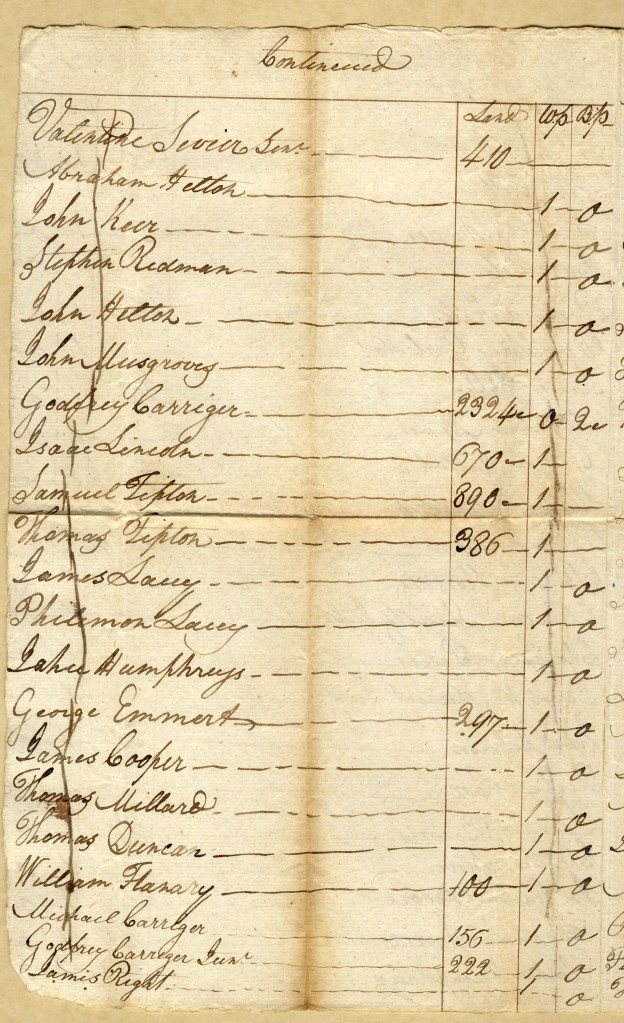 Continued
Land Wp Bp
Valentine Sevier Senr. 410
Abraham Helton 1 0
John Keer 1 0
Stephen Redman 1 0
John Helton 1 0
John Musgroves 1 0
Godfrey Carriger 2324 0 2
Isaac Lincoln 670 1
Samuel Tipton 890 1
Thomas Tipton 386 1
James Lacey 1 0
Philemon Lacey 1 0
Humphreys 1 0
George Emmert 297 1 0
James Cooper 1 0
Thomas Millard 1 0
Thomas Duncan 1 0
William Flanary 100 1 0
Michael Carriger 156 1 0
Godfrey Carriger Junr. 222 1 0
James Right 1 0